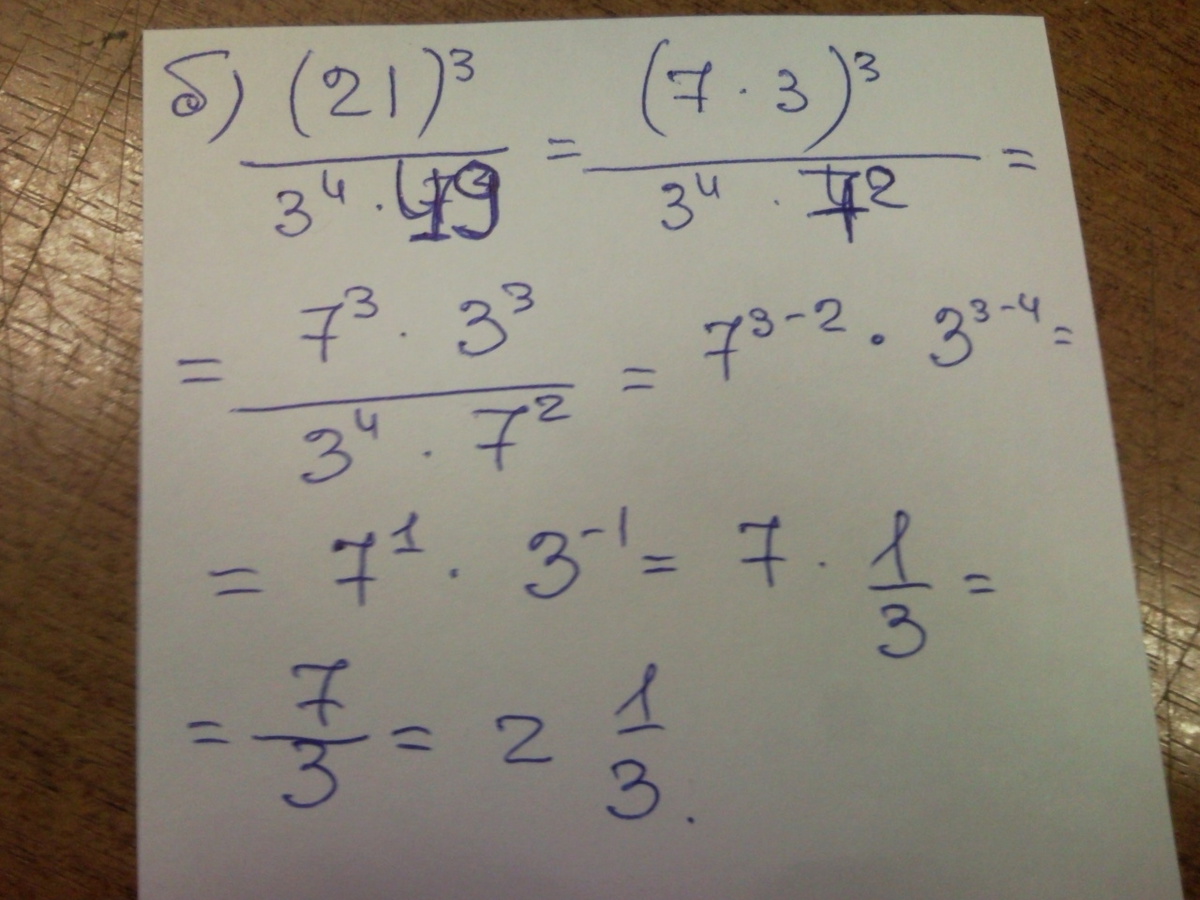 б) (21)³ / (3⁴ · 49) = (7 · 3)³ / (3⁴ · 7²) =
= (7³ · 3³) / (3⁴ · 7²) = 7³⁻² · 3³⁻⁴ =
= 7¹ · 3⁻¹ = 7 · 1/3 =
= 7/3 = 2 1/3.